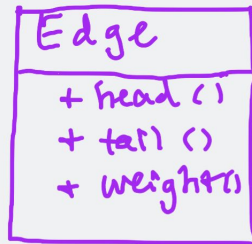 Edge
+ head()
+ tail()
+ weight()